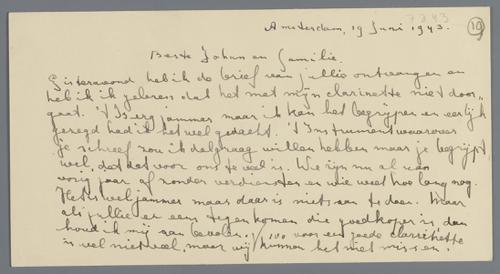 7343
Amsterdam, 19 Juni 1943.
19
Beste Johan en Familie.
Gisteravond heb ik de brief van jullie ontvangen en
heb ik gelezen dat het met mijn clarinette niet door-
gaat. 't Is erg jammer maar ik kan het begrijpen en eerlijk
gezegd had ik het wel gedacht. 't Instrument waarover
je schreef zou ik dolgraag willen hebben maar je begrijpt
wel, dat dat voor ons te veel is. We zijn nu al van
vorig jaar af zonder verdiensten en wie weet hoe lang nog.
Het is wel jammer maar daar is niets aan te doen. Maar
als jullie er eens tegen komen die goedkoper is dan
houd ik mij aanbevolen. ƒ 100 voor een goede clarinette
is wel niet veel, maar wij kunnen het niet missen.